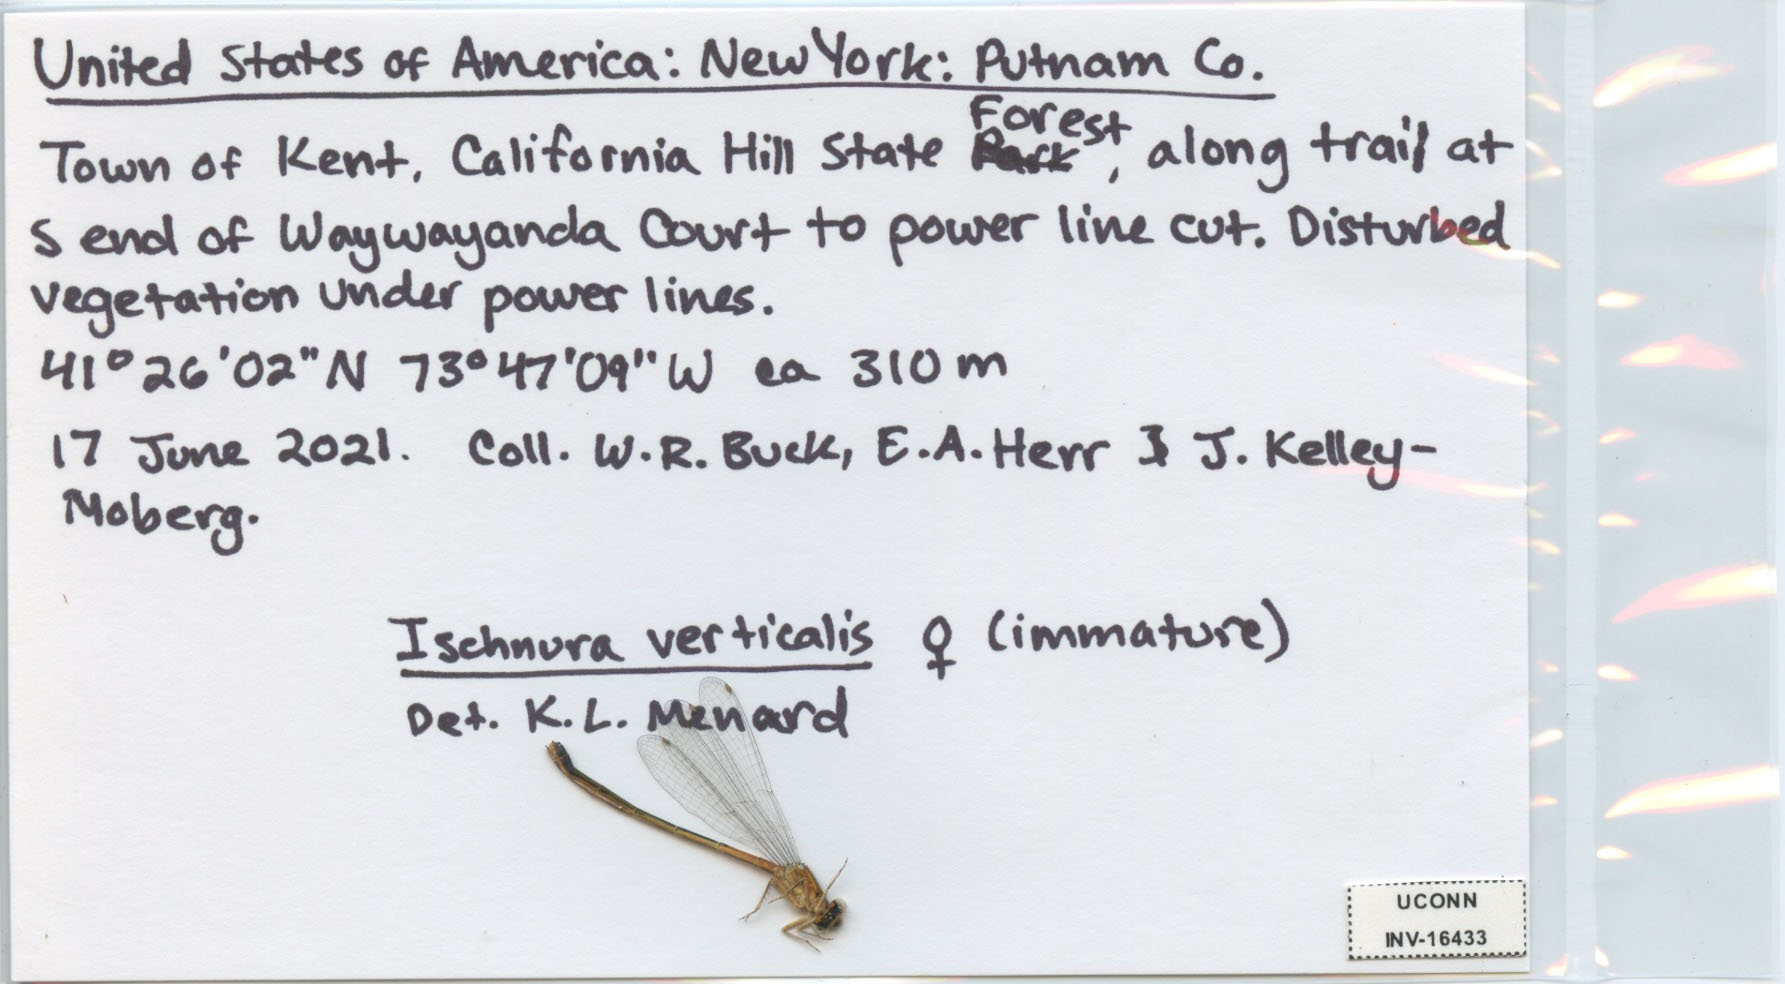 United States of America: New York: Putnam Co.
Town of Kent, California Hill State Forest, along trail at
S end of Waywayanda Court to power line cut. Disturbed
vegetation under power lines.
41°26'02"N 73°47'09"W ca 310 m
17 June 2021. Coll. W.R. Buck, E.A. Herr & J. Kelley-
Moberg.
Ischnura verticalis ♀ (immature)
Det. K.L. Menard
UCONN
INV-16433